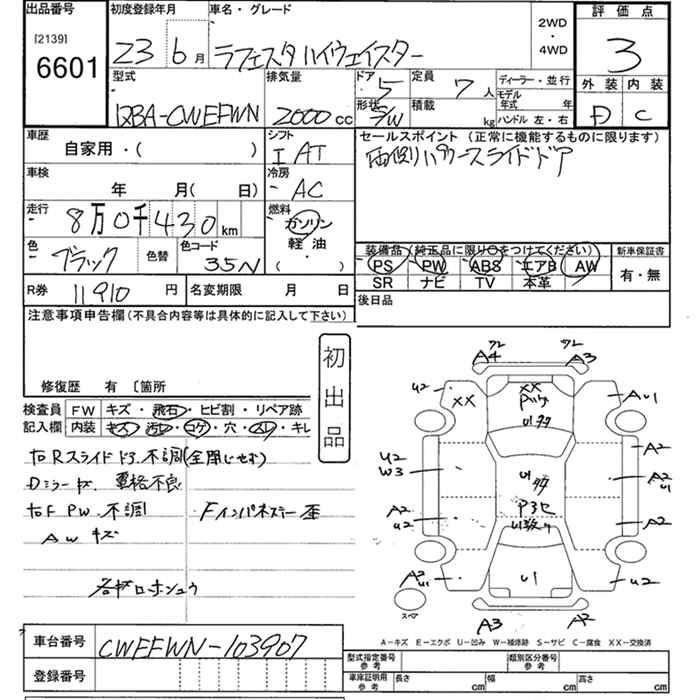 出品番号
[2139]
6601
初度登録年月
23 6月
車名・グレード
ラフェスタハイウェイスター
2WD
・
4WD
評価点
3
外装 内装
D C
型式
DBA-CWEFWN
排気量
2000cc
ドア
5
形状
S/W
定員
7人
積載
kg
ディーラー・並行
モデル年式 年
ハンドル 左・右
車歴
自家用・( )
シフト
I AT
セールスポイント (正常に機能するものに限ります)
両側パワースライドドア
車検
年 月( 日)
冷房
AC
走行
8万0千430km
燃料
ガソリン
軽油
・( )
色
ブラック
色替
色コード
35N
装備品(純正品に限り○をつけてください)
PS PW ABS エアB AW
SR ナビ TV 本革
新車保証書
有・無
R券 11910円
名変期限 月 日
後日品
注意事項申告欄(不具合内容等は具体的に記入して下さい)
修復歴 有 〔箇所
初出品
検査員
記入欄
FW キズ・飛石・ヒビ割・リペア跡
内装 キズ・汚レ・コゲ・穴・スレ・キレ
Rスライドドア不調(全閉じせず)
Dミラーキズ 格格不良
F PW 不調
Fインパネステー歪
AW キズ
各部
A4 A3
U2 XX XX U1 AU1
A2
U2 W3 U1 A2 U1
A2 U2 A2
A2 U1 U1 U2
スペア
A3 A2
A-キズ E-エクボ U-凹み W-補修跡 S-サビ C-腐食 XX-交換済
車台番号 CWEFWN-103907
登録番号
型式指定番号
参考
類別区分番号
参考
車庫証明用
参考
長さ cm
幅 cm
高さ cm